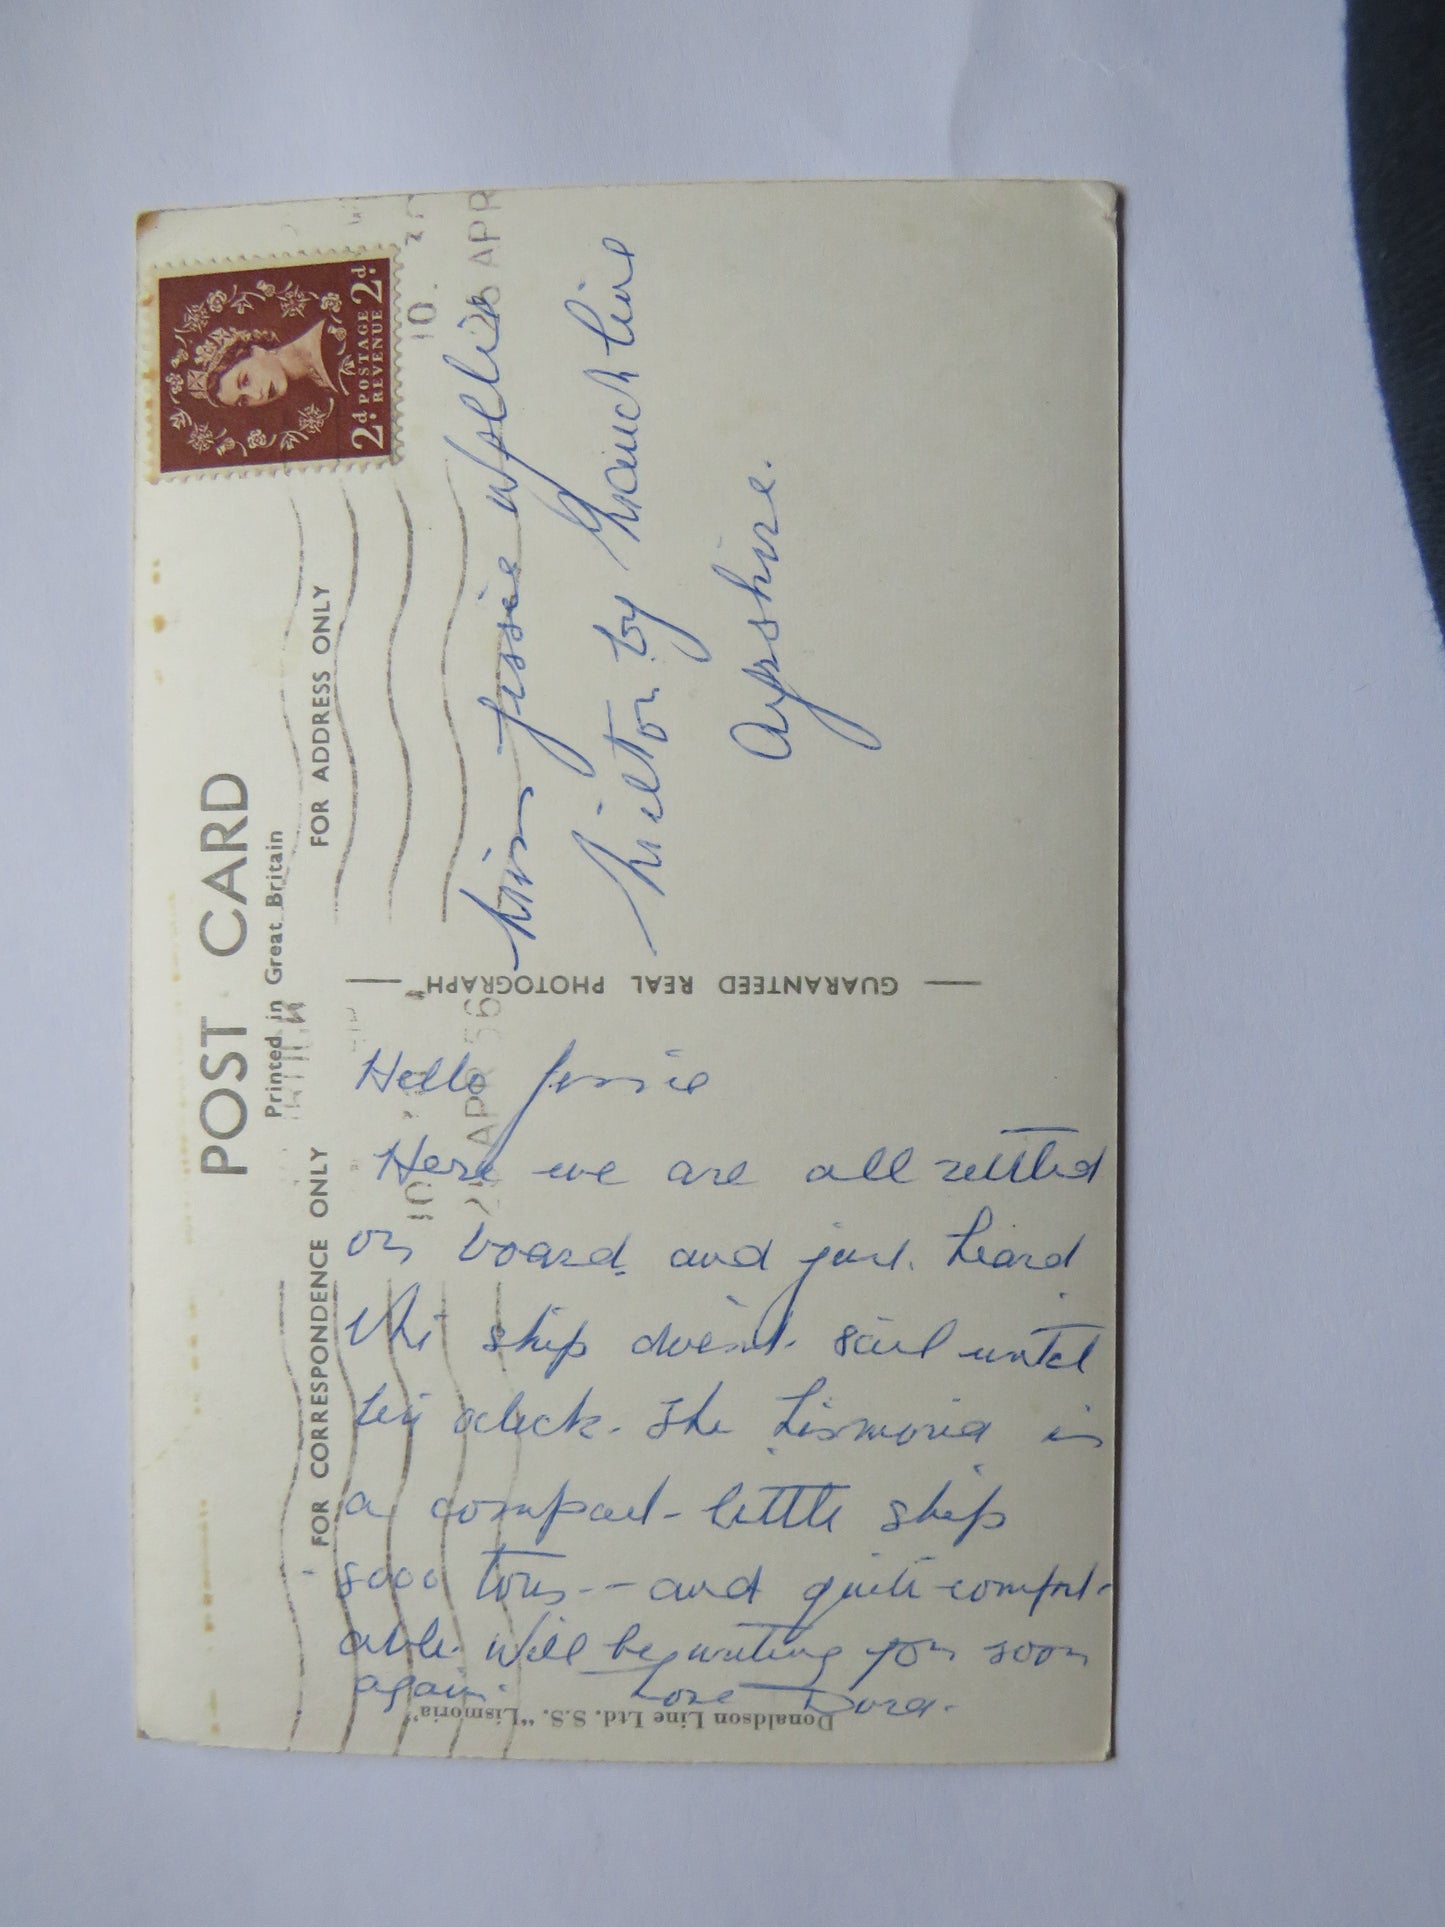 POST CARD
Printed in Great Britain
FOR CORRESPONDENCE ONLY
FOR ADDRESS ONLY
2d POSTAGE 2d
REVENUE
10
APR 56
10
APR
Hello Jessie
Here we are all settled
on board and just heard
the ship doesn't sail until
ten oclock. The Lismoria is
a compact little ship
8000 tons -- and quite comfort-
able. Will be writing you soon
again. Love Dora.
Miss Jessie Wyllie
Hilton by Mauchline
Ayrshire.
GUARANTEED REAL PHOTOGRAPH
Donaldson Line Ltd. S.S. "Lismoria"